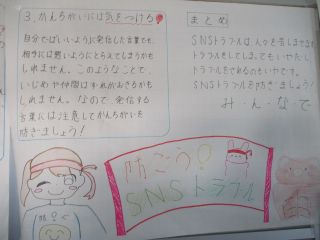 3. かんちがいには気をつけろ
自分ではいいように発信した言葉でも、
相手には悪いようにとらえてしまうかも
しれません。このようなことで、
いじめや仲間はずれがおきるかも
しれません。なので、発信する
言葉には注意してかんちがいを
防ぎましょう!
まとめ
SNSトラブルは、人々を苦しませます
トラブルをしてしまってもいやだし
トラブルをされるのもいやです。
SNSトラブルを防ぎましょう!
み・ん・な・で
防ごう?
SNSトラブル